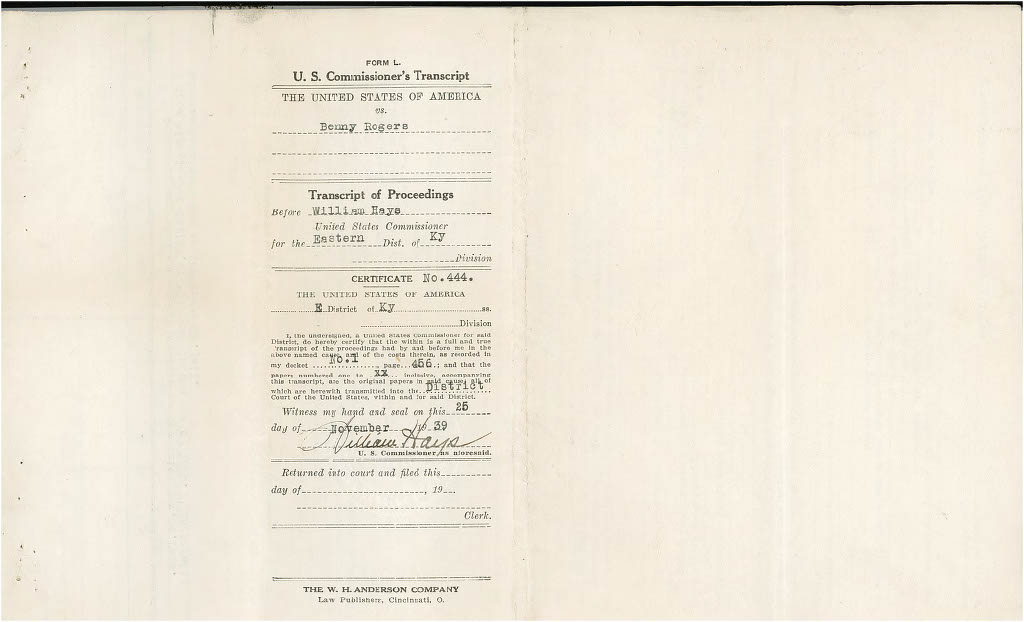 FORM L.
U. S. Commissioner's Transcript
THE UNITED STATES OF AMERICA
vs.
Benny Rogers
Transcript of Proceedings
Before William Hays
United States Commissioner
for the Eastern Dist. of Ky
Division
CERTIFICATE No.444.
THE UNITED STATES OF AMERICA
E District of Ky ss.
Division
I, the undersigned, a United States Commissioner for said
District, do hereby certify that the within is a full and true
Transcript of the proceedings had by and before me in the
above named cause, and of the costs therein, as recorded in
my docket No.1, page 456.; and that the
papers numbered one to xx inclusive, accompanying
this transcript, are the original papers in said cause; all of
which are herewith transmitted into the District
Court of the United States, within and for said District.
Witness my hand and seal on this 25
day of November 1939
William Hays
U. S. Commissioner as aforesaid.
Returned into court and filed this
day of , 19 .
Clerk.
THE W. H. ANDERSON COMPANY
Law Publishers, Cincinnati, O.